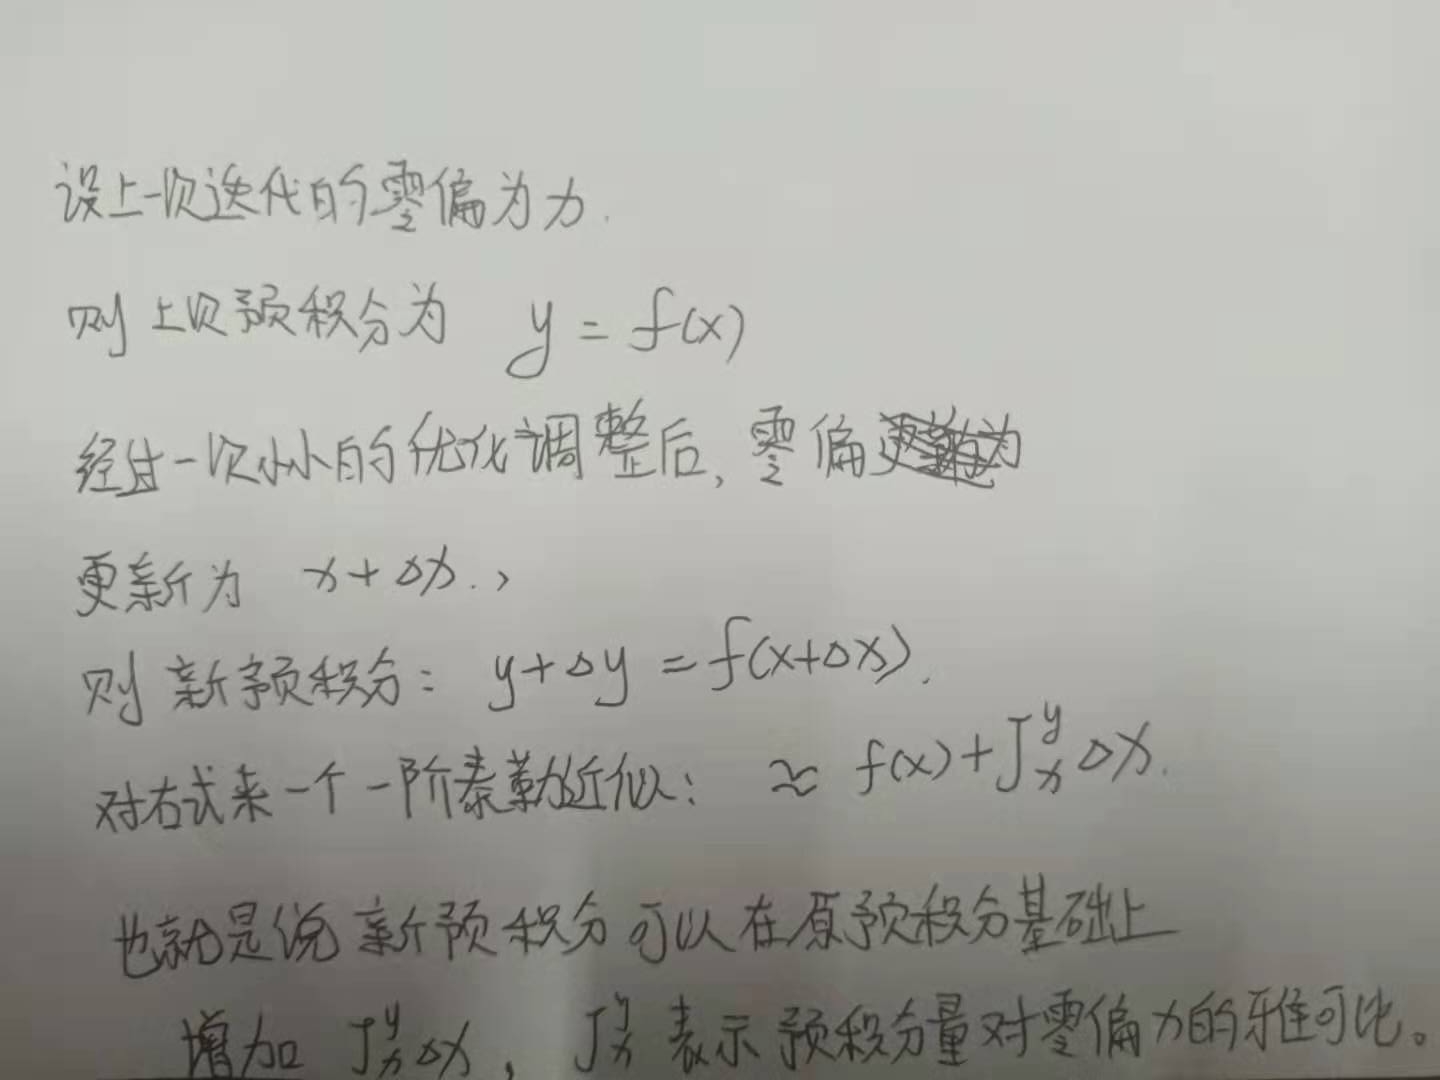 设上一次迭代的零偏为x.
则上次预积分为 y = f(x)
经过一次小小的优化调整后, 零偏
更新为 x+Δx.,
则新预积分: y+Δy = f(x+Δx).
对右式来一个一阶泰勒近似: ≈ f(x)+J_x^y Δx.
也就是说新预积分可以在原预积分基础上
增加 J_x^y Δx, J_x^y 表示预积分量对零偏x的雅可比。